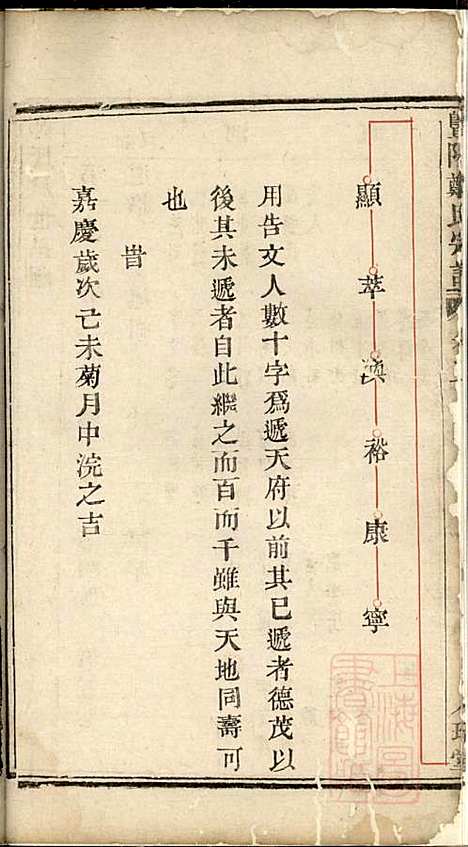 暨陽鄭氏宗譜
顯萃渙裕康寧
用告文人數十字爲遞天府以前其已遞者德茂以
後其未遞者自此繼之而百而千雖與天地同壽可
也
旹
嘉慶歲次己未菊月中浣之吉
上海圖書館藏